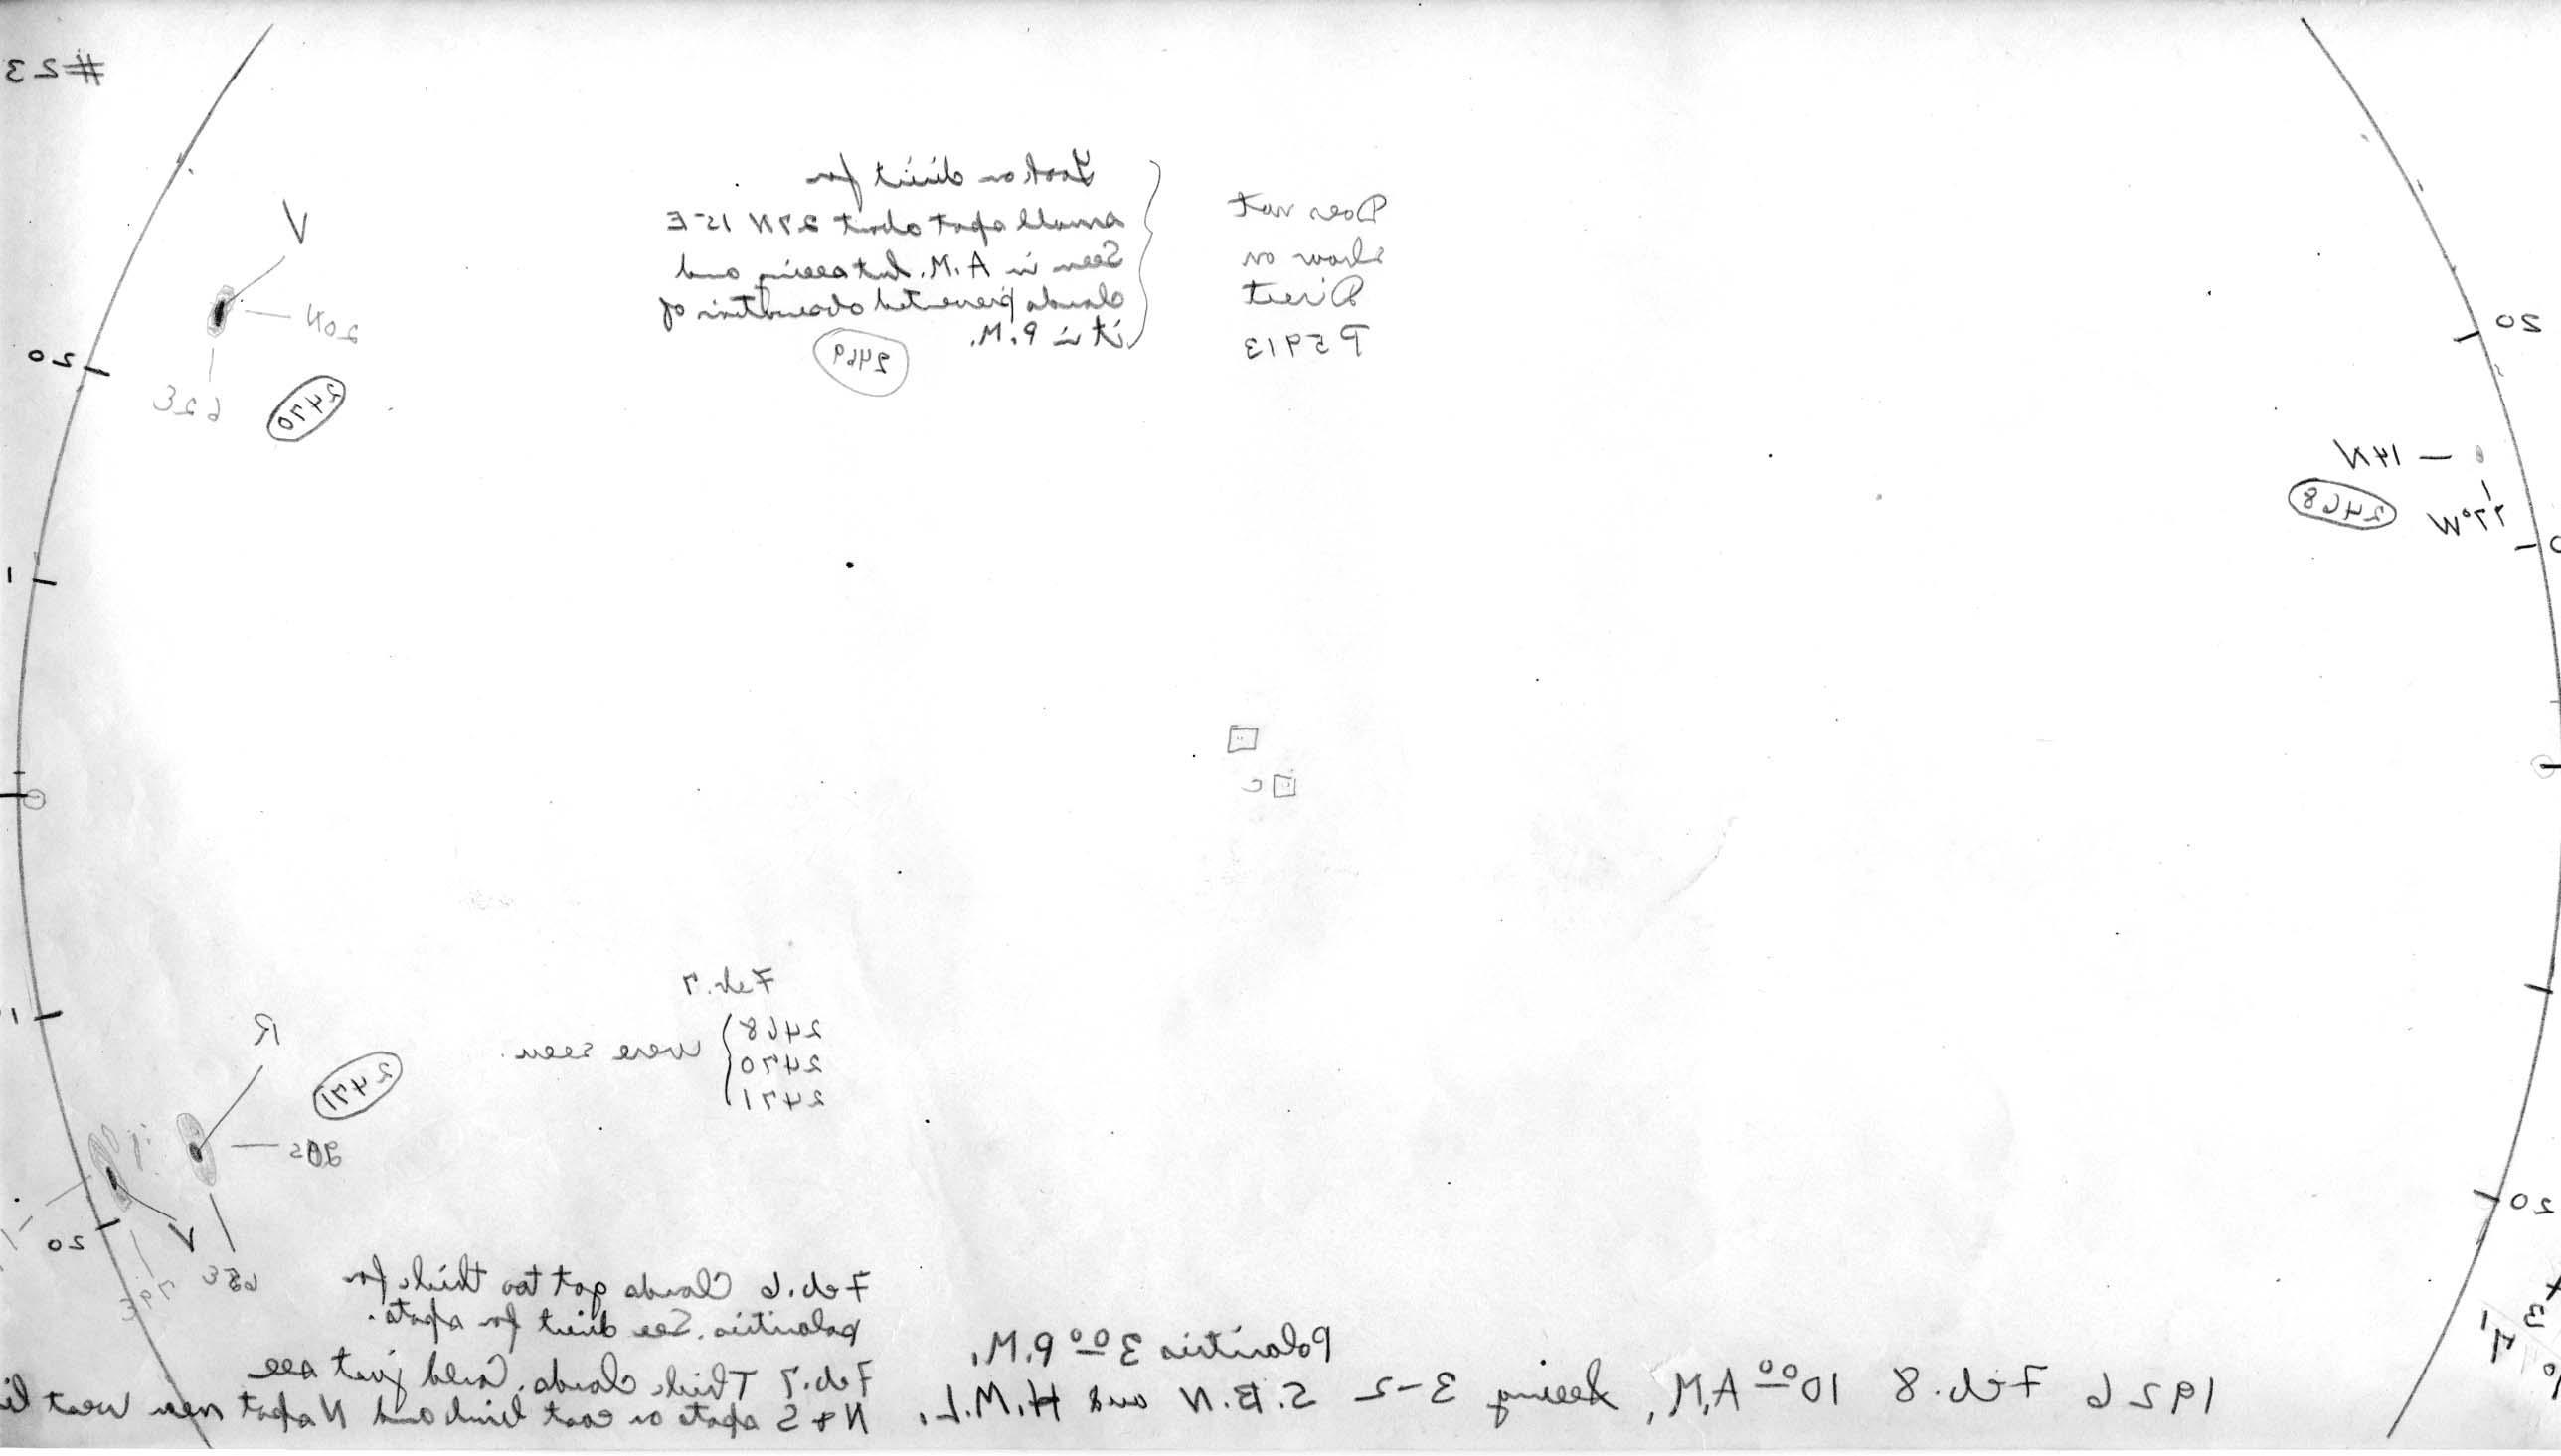 #23
Look on direct for
small spot about 27N 15E
Seen in A.M. but seeing and
clouds prevented observation of
it in P.M.
2469
Does not
show on
Direct
P5913
V
20N
62E
2470
20
20
14N
77°W
2468
1
0
C
Feb. 7
2468
2470
2471
were seen.
R
2471
20S
65E
V
79E
20
20
1
Feb. 6 Clouds got too thick for
polarities. See direct for spots.
Feb. 7 Thick clouds. Could just see
N & S spots on east limb and N spot near west li
Polarities 3 00 P.M.
1926 Feb. 8 10 00 A.M. Seeing 3-2 S.B.N and H.M.L.